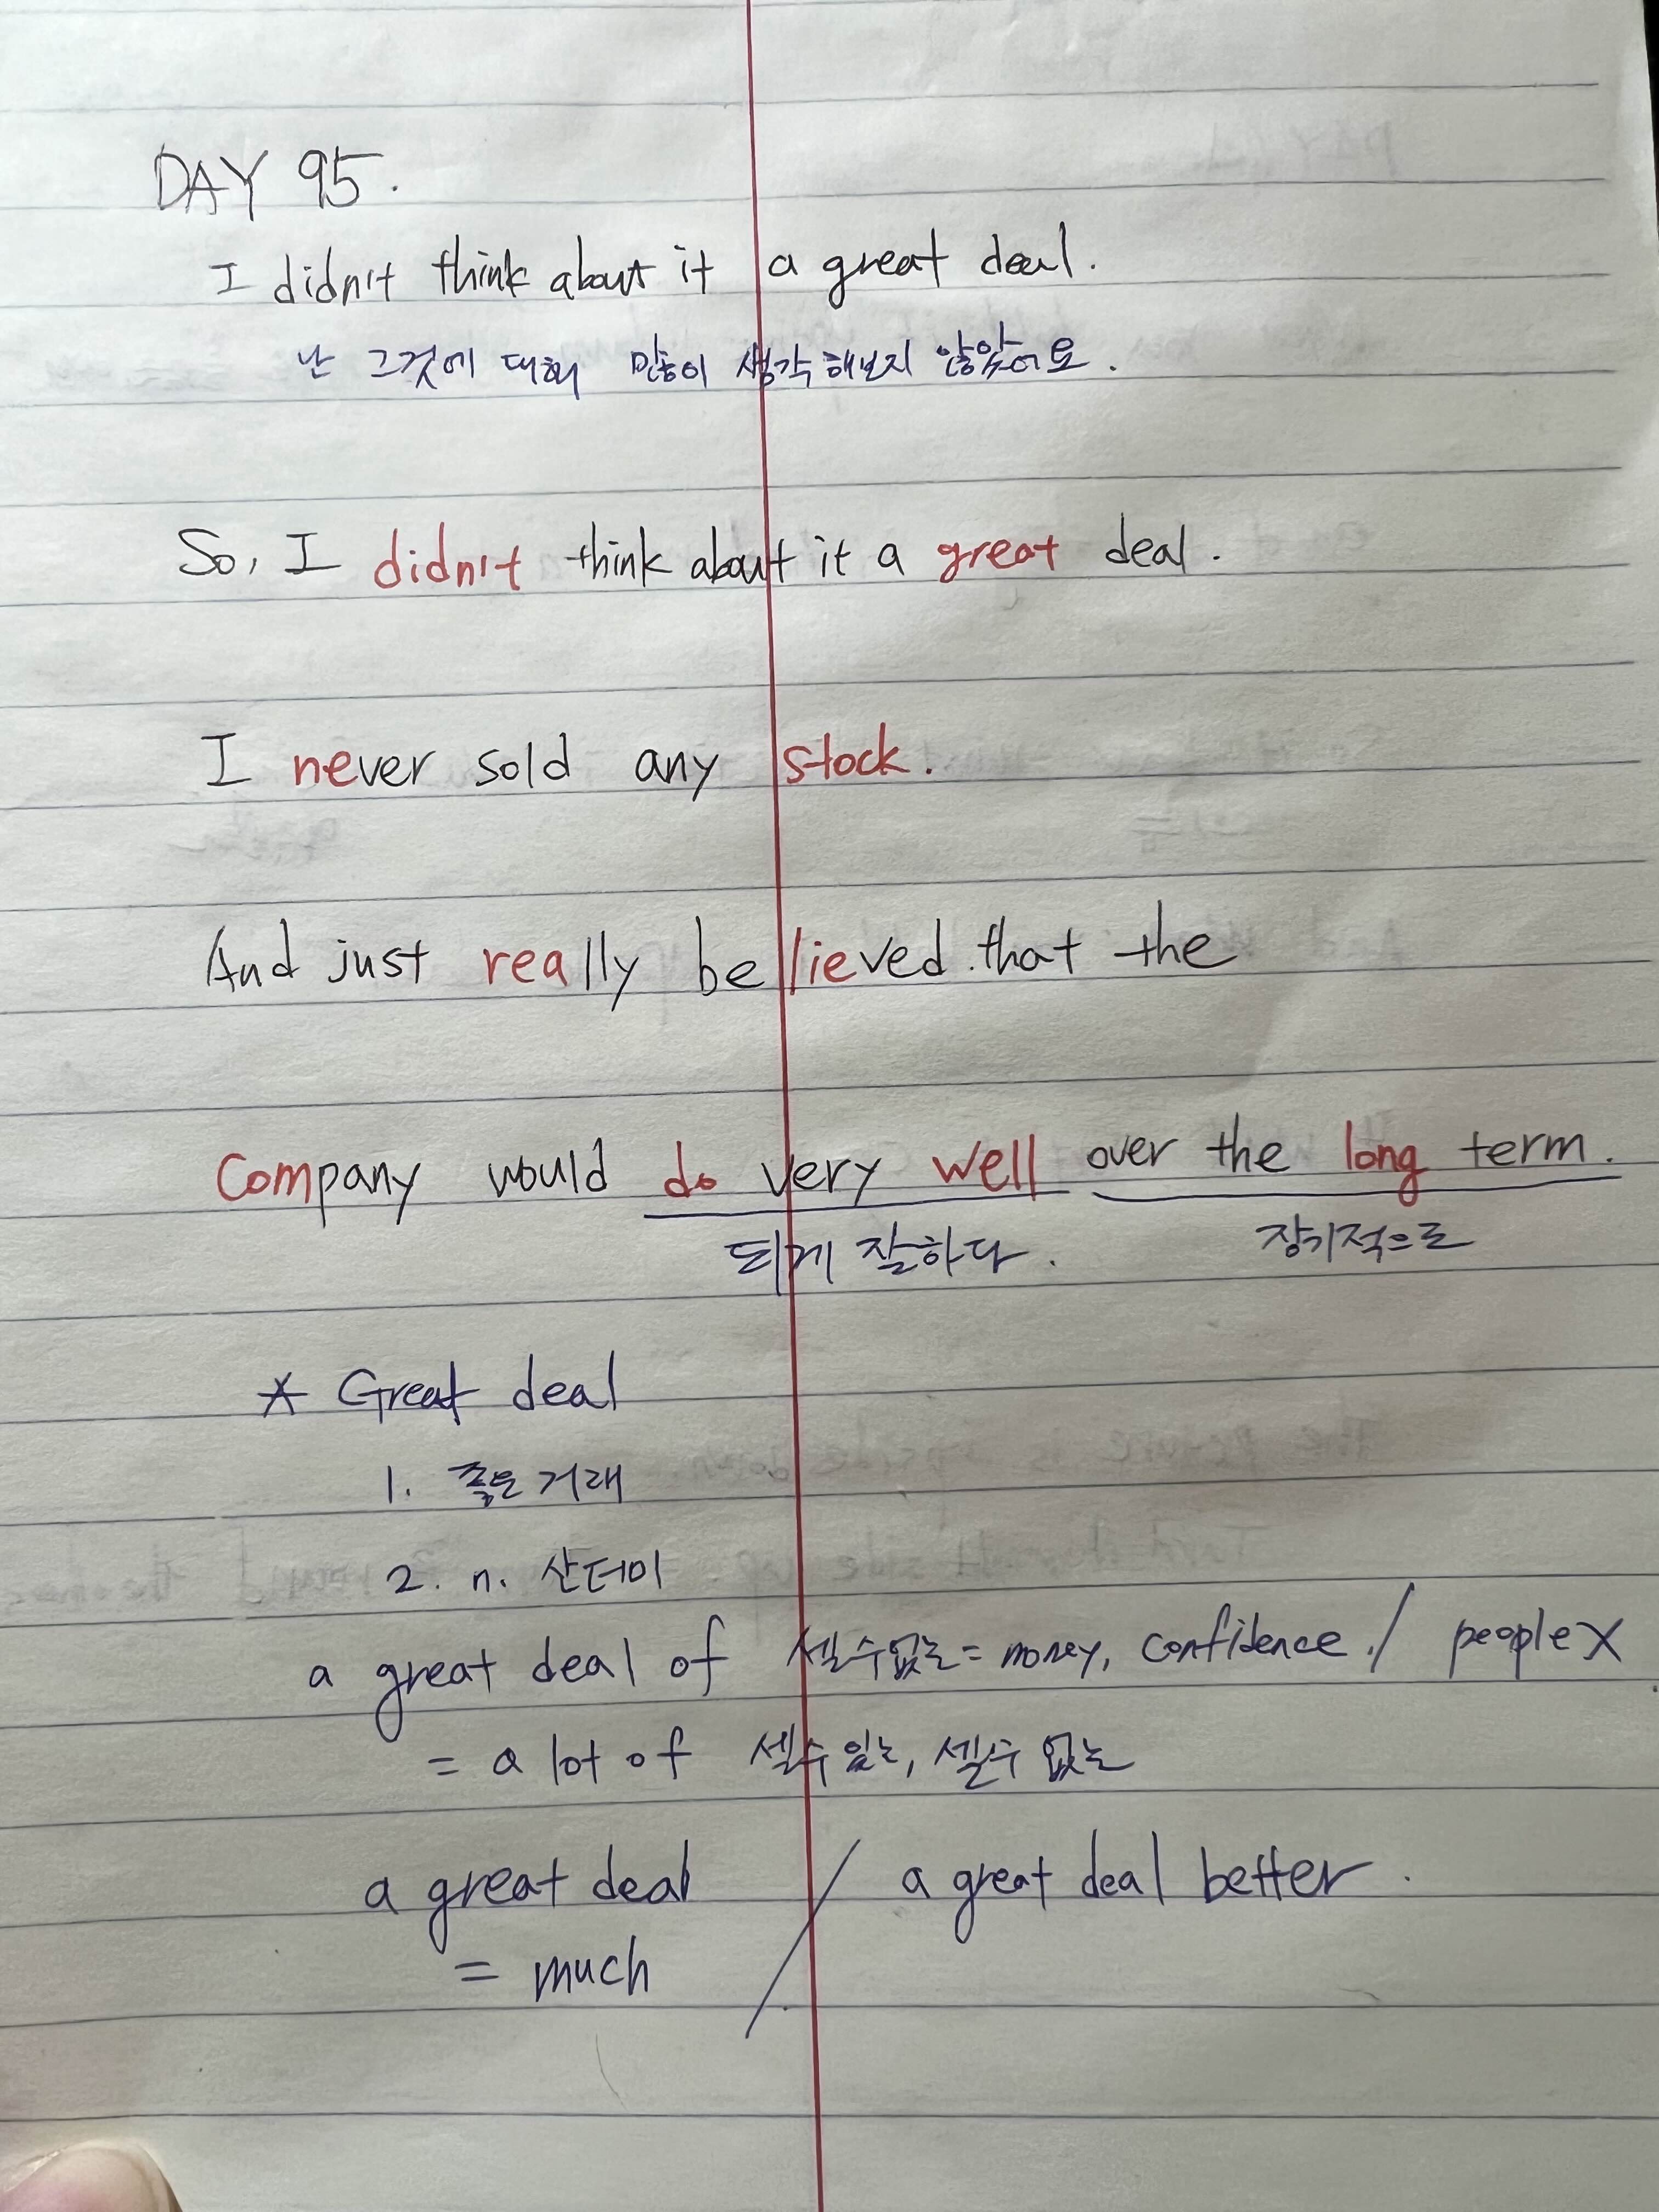 DAY 95.
I didn't think about it a great deal.
난 그것에 대해 많이 생각해보지 않았어요.
So, I didn't think about it a great deal.
I never sold any stock.
And just really believed that the
Company would do very well over the long term.
되게 잘하다. 장기적으로
* Great deal
1. 좋은 거래
2. n. 산더미
a great deal of 셀수없는 = money, confidence / people X
= a lot of 셀수 있는, 셀수 없는
a great deal / a great deal better.
= much